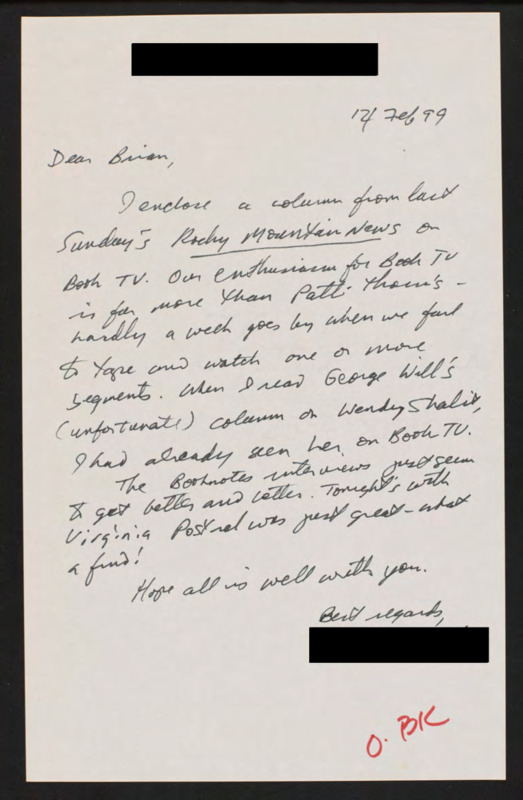 14 Feb 99
Dear Brian,
I enclose a column from last
Sunday's Rocky Mountain News on
Book TV. Our enthusiasm for Book TV
is far more than Patti Thorn's -
hardly a week goes by when we fail
to tape and watch one or more
segments. When I read George Will's
(unfortunate) column on Wendy Shalit,
I had already seen her on Book TV.
The Booknotes interviews just seem
to get better and better. Tonight's with
Virginia Postrel was just great - what
a find!
Hope all is well with you.
Best regards,
O. BK